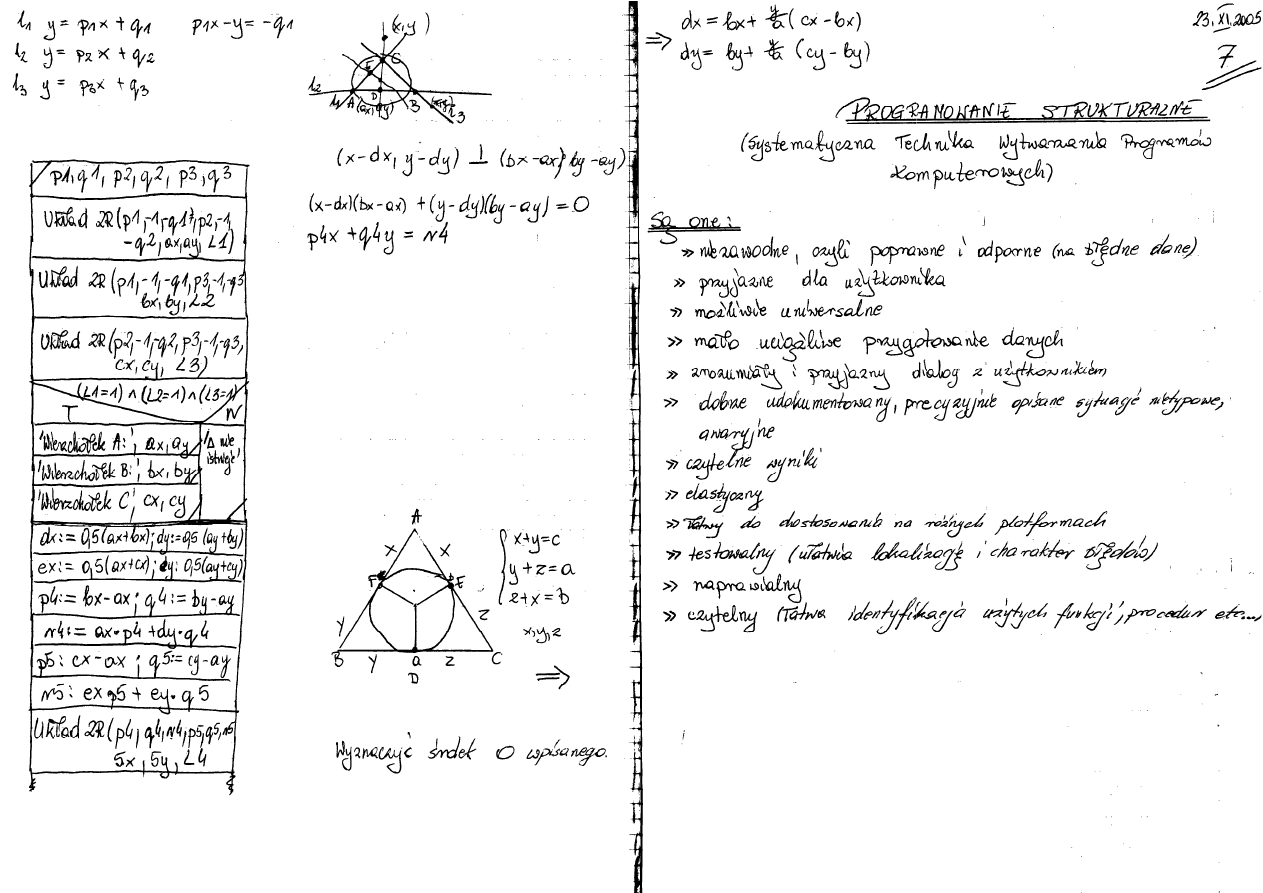 l1 y = p1x + q1 p1x - y = -q1
l2 y = p2x + q2
l3 y = p3x + q3
(x,y)
l2
E
C
A
D
B
l3
(x-dx, y-dy) ⊥ (bx-ax, by-ay)
(x-dx)(bx-ax) + (y-dy)(by-ay) = 0
p4x + q4y = r4
p1, q1, p2, q2, p3, q3
Układ 2R(p1,-1,-q1, p2,-1,
-q2, ax, ay, L1)
Układ 2R(p1,-1,-q1, p3,-1,-q3
bx, by, L2
Układ 2R(p2,-1,-q2, p3,-1,-q3,
cx, cy, L3)
(L1=1) ∧ (L2=1) ∧ (L3=1)
T N
'Wierzchołek A:', ax, ay
'Δ nie
istnieje'
'Wierzchołek B:', bx, by
'Wierzchołek C', cx, cy
dx:= 0,5(ax+bx); dy:= 0,5(ay+by)
ex:= 0,5(ax+cx); ey: 0,5(ay+cy)
p4:= bx-ax; q4:= by-ay
r4:= ax·p4 + dy·q4
p5: cx-ax; q5:= cy-ay
r5: ex·p5 + ey·q5
Układ 2R(p4, q4, r4, p5, q5, r5
5x, 5y, L4
A
x x
F E
y z
B y a z C
D
x+y=c
y+z=a
z+x=b
x,y,z
⇒
Wyznaczyć środek O wpisanego.
dx = bx + y/a (cx-bx)
⇒ dy = by + y/a (cy-by)
23.XI.2005
7
PROGRAMOWANIE STRUKTURALNE
(Systematyczna Technika Wytwarzania Programów
Komputerowych)
Są one:
» niezawodne, czyli poprawne i odporne (na błędne dane)
» przyjazne dla użytkownika
» możliwie uniwersalne
» mało uciążliwe przygotowanie danych
» zrozumiały i przyjazny dialog z użytkownikiem
» dobrze udokumentowany, precyzyjnie opisane sytuacje nietypowe,
awaryjne
» czytelne wyniki
» elastyczny
» łatwy do dostosowania na różnych platformach
» testowalny (ułatwia lokalizację i charakter błędów)
» naprawialny
» czytelny (łatwa identyfikacja użytych funkcji, procedur etc...,